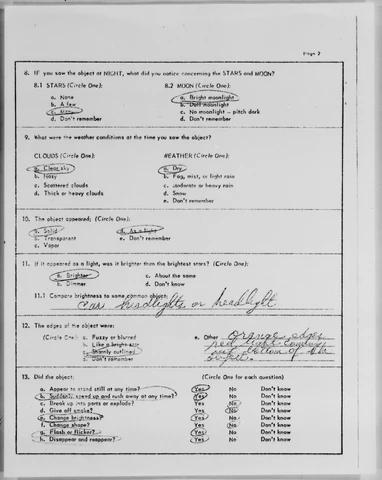 Page 2
8. IF you saw the object at NIGHT, what did you notice concerning the STARS and MOON?
8.1 STARS (Circle One): 8.2 MOON (Circle One):
a. None a. Bright moonlight
b. A few b. Dull moonlight
c. Many c. No moonlight - pitch dark
d. Don't remember d. Don't remember
9. What were the weather conditions at the time you saw the object?
CLOUDS (Circle One): WEATHER (Circle One):
a. Clear sky a. Dry
b. Hazy b. Fog, mist, or light rain
c. Scattered clouds c. Moderate or heavy rain
d. Thick or heavy clouds d. Snow
e. Don't remember
10. The object appeared; (Circle One):
a. Solid d. As a light
b. Transparent e. Don't remember
c. Vapor
11. If it appeared as a light, was it brighter than the brightest stars? (Circle One):
a. Brighter c. About the same
b. Dimmer d. Don't know
11.1 Compare brightness to some common object:
car headlights or headlight
12. The edges of the object were:
(Circle One): a. Fuzzy or blurred e. Other orange edges
b. Like a bright star red light coming
c. Sharply outlined out bottom of the
d. Don't remember object.
13. Did the object: (Circle One for each question)
a. Appear to stand still at any time? Yes No Don't know
b. Suddenly speed up and rush away at any time? Yes No Don't know
c. Break up into parts or explode? Yes No Don't know
d. Give off smoke? Yes No Don't know
e. Change brightness? Yes No Don't know
f. Change shape? Yes No Don't know
g. Flash or flicker? Yes No Don't know
h. Disappear and reappear? Yes No Don't know